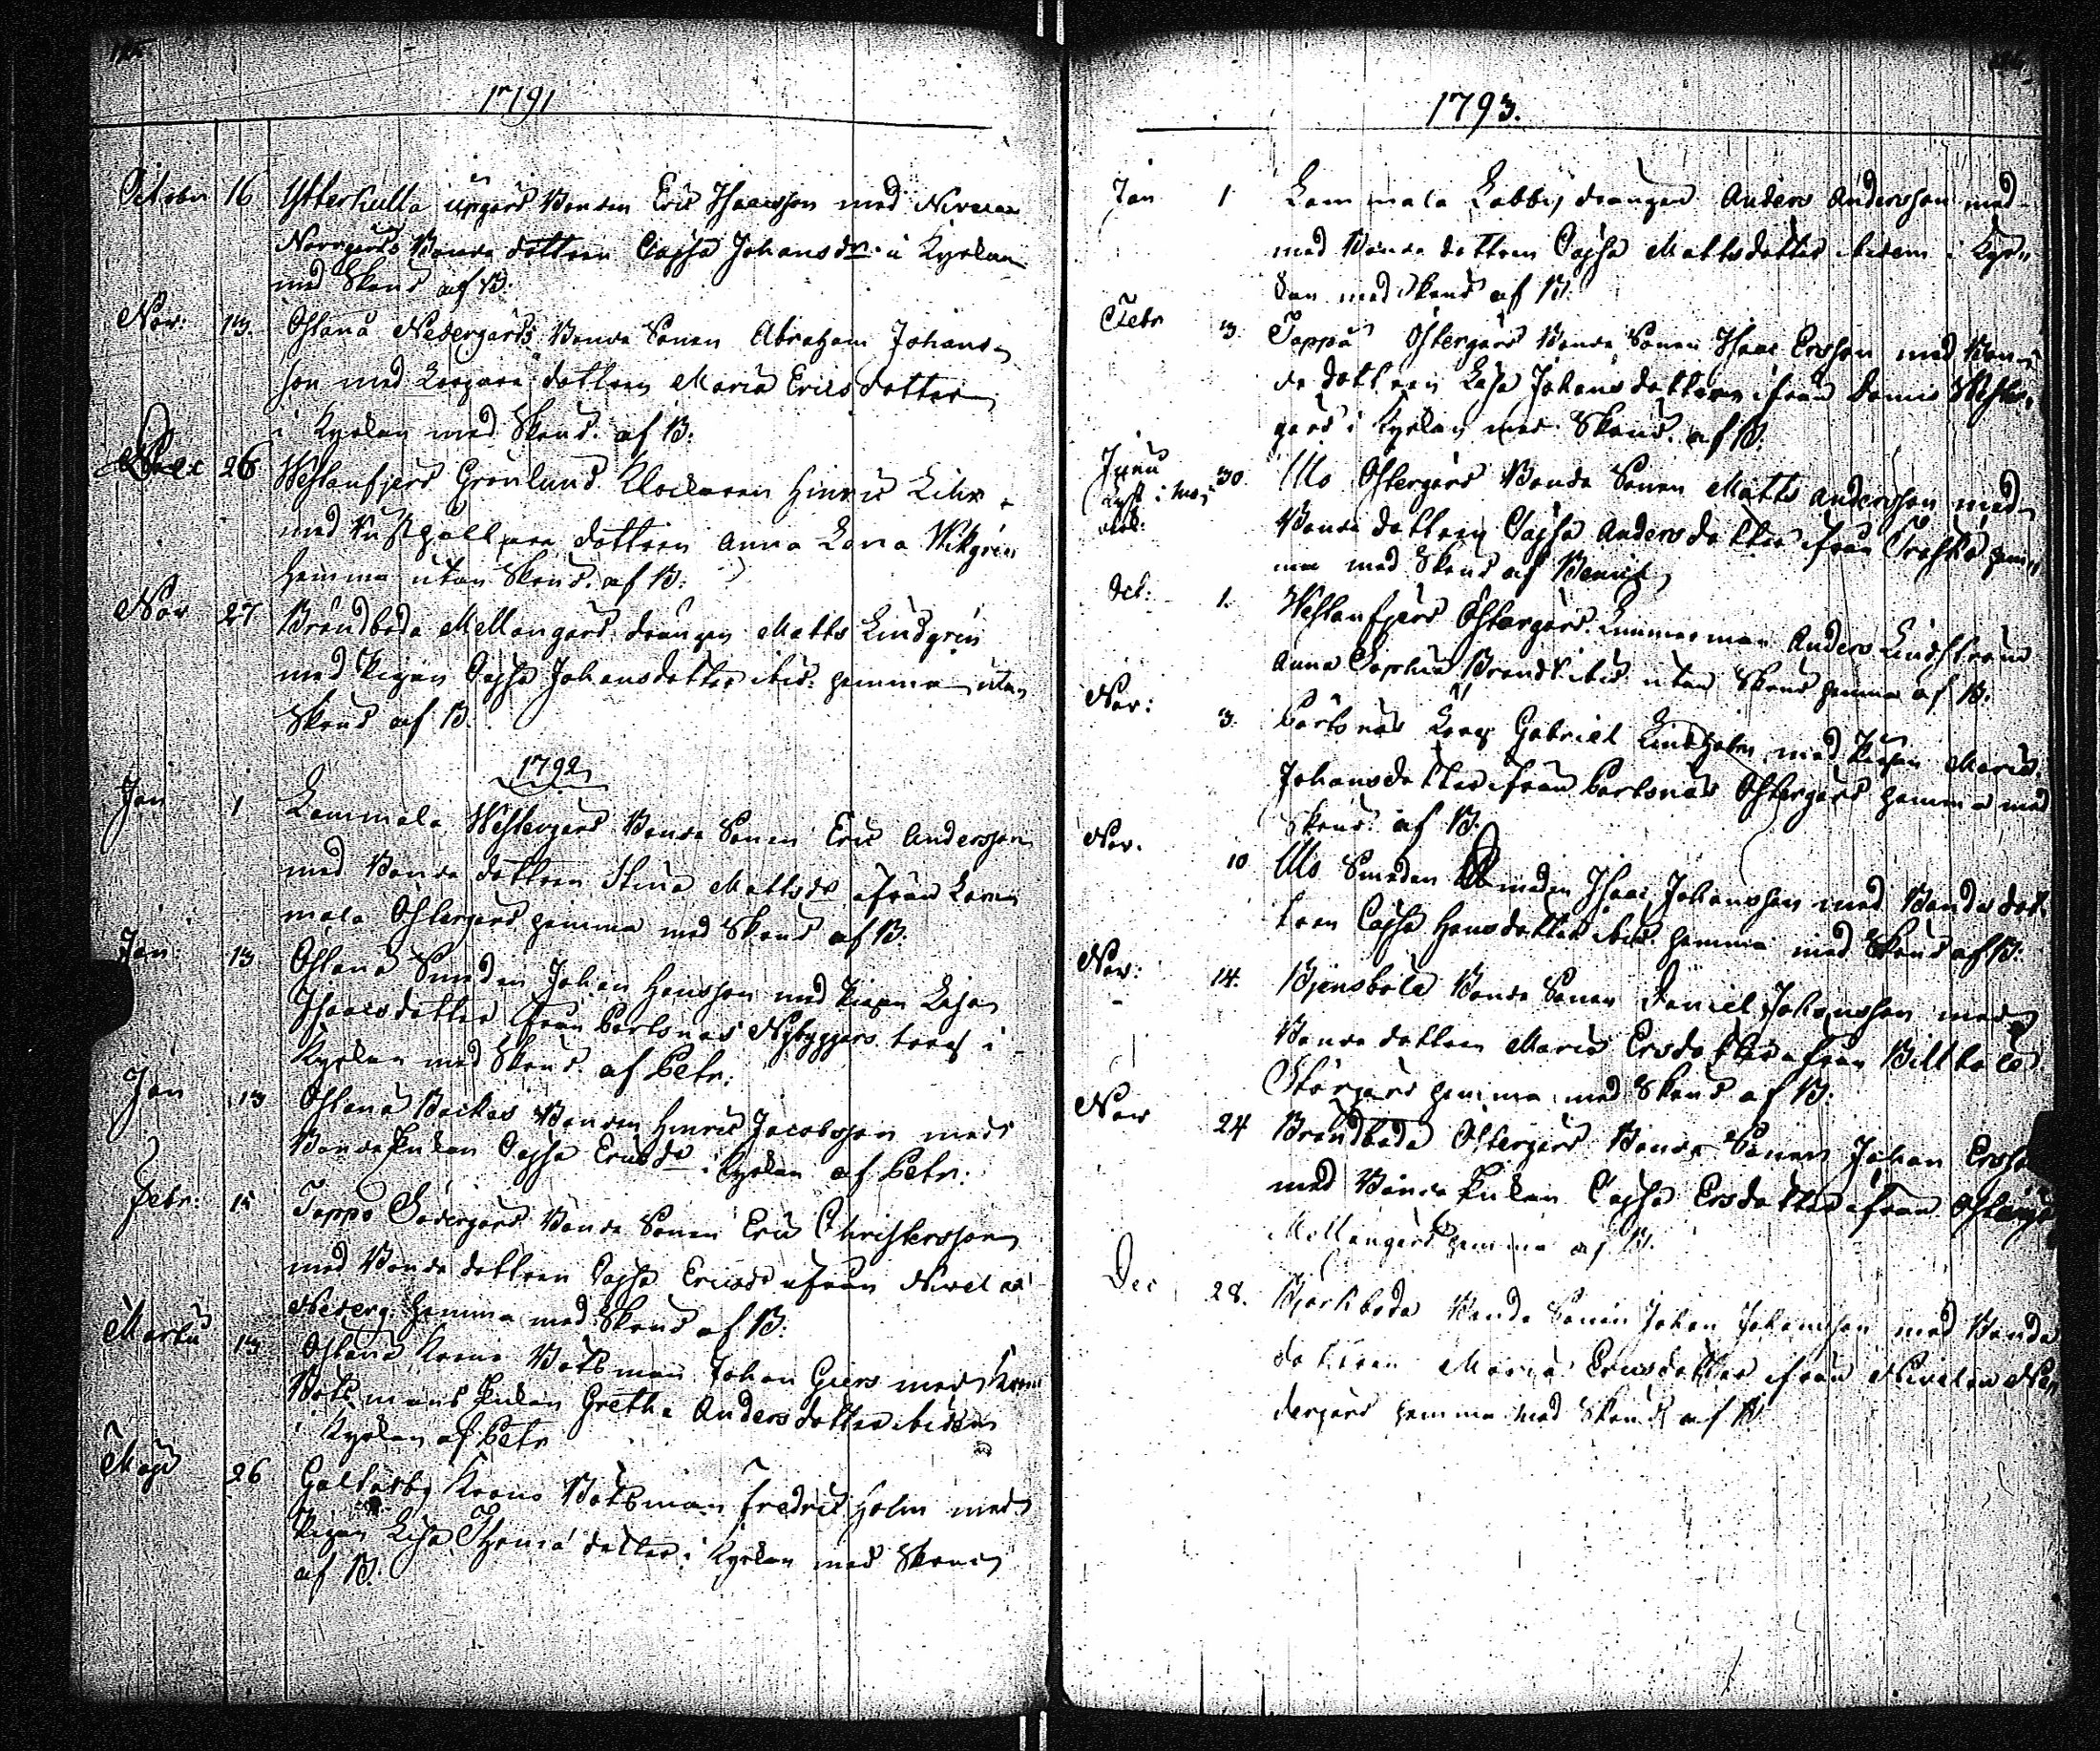 1791
October 16 Ytterkulla ungars Bonden Eric Isacsson med Nivelax
Norrgårds Bonde dottren Cajsa Johansdr i Kyrkan
med Skrud af B:
Nov: 13. Östanå Nedergårds Bonde Sonen Abraham Johans
son med Torpare dottren Maria Ericsdotter
i Kyrkan med Skrud af B:
26 Westanfjerd Grönlund Klockaren Hinric Lihr
med Rusthållare dottren Anna Lena Wikgren
hemma utan Skrud af B:
Nov 27 Brändboda Mellangård drängen Matts Lindgren
med Pigan Cajsa Johansdotter ibid: hemma utan
Skrud af B.
1792
Jan 1 Lammala Westergård Bonde Sonen Eric Andersson
med Bonde dottren Stina Mattsdr ifrån Lam
mala Östergård hemma med Skrud af B:
Jan: 13 Östanå Smeden Johan Hansson med Pigan Lisa
Isaacsdotter ifrån Pertsnäs Nybyggars torp i
Kyrkan med Skrud af Petr:
Jan 13 Östanå Backas Bonden Hinric Jacobsson med
Bonde Enkan Cajsa Ericsdr i Kyrkan af Petr:
Febr: 15 Tappo Södergård Bonde Sonen Eric Christersson
med Bonde dottren Cajsa Ericsdr ifrån Nivelax
Nederg: hemma med Skrud af B:
Martii 13 Östanå Krono Båtsman Johan Giers med Krono
Båtsmans Enkan Gretha Andersdotter ibidem
i Kyrkan af Petr
Maji 26 Galtarby Krono Båtsman Fredric Holm med
Pigan Lisa Thomædotter i Kyrkan med Skrud
af B.
1793.
Jan 1 Lammala Labbas drängen Anders Andersson med
med Bonde dottren Cajsa Mattsdotter ibidem i Kyr
kan med Skrud af B:
Febr 3. Tappo Östergård Bonde Sonen Isaac Ersson med Bon
de dottren Lisa Johansdotter ifrån Domis Wester
gård i Kyrkan med Skrud af B.
Junii 30. Mo Östergård Bonde Sonen Matts Andersson med
Bonde dottren Cajsa Andersdotter ifrån hem
ma med Skrud af
Oct: 1. Westanfjerd Östergård Timmerman Anders Lindström
Anna Sophia Brandt ibid utan Skrud hemma af B:
Nov: 3. Pertsnäs Torp: Gabriel Lindholm med Pigan Maria
Johansdotter ifrån Pertsnäs Östergård hemma med
Skrud af B.
Nov. 10 Mo Smeden Isaac Johansson med Bonde dot
tren Cajsa Hansdotter ibid. hemma med Skrud af B:
Nov: 14. Björsböle Bonde Sonen Daniel Johansson med
Bonde dottren Maria Ersdotter ifrån Billböle
Storgård hemma med Skrud af B:
Nov 24 Brändboda Östergård Bonde Sonen Johan Ersso
med Bonde Enkan Cajsa Ersdotter ifrån
Mellangård hemma af B.
Dec 28. Björkboda Bonde Sonen Johan Johansson med Bonde
dottren Maria Ericsdotter ifrån Nivelax Ne
dergård hemma med Skrud af B.